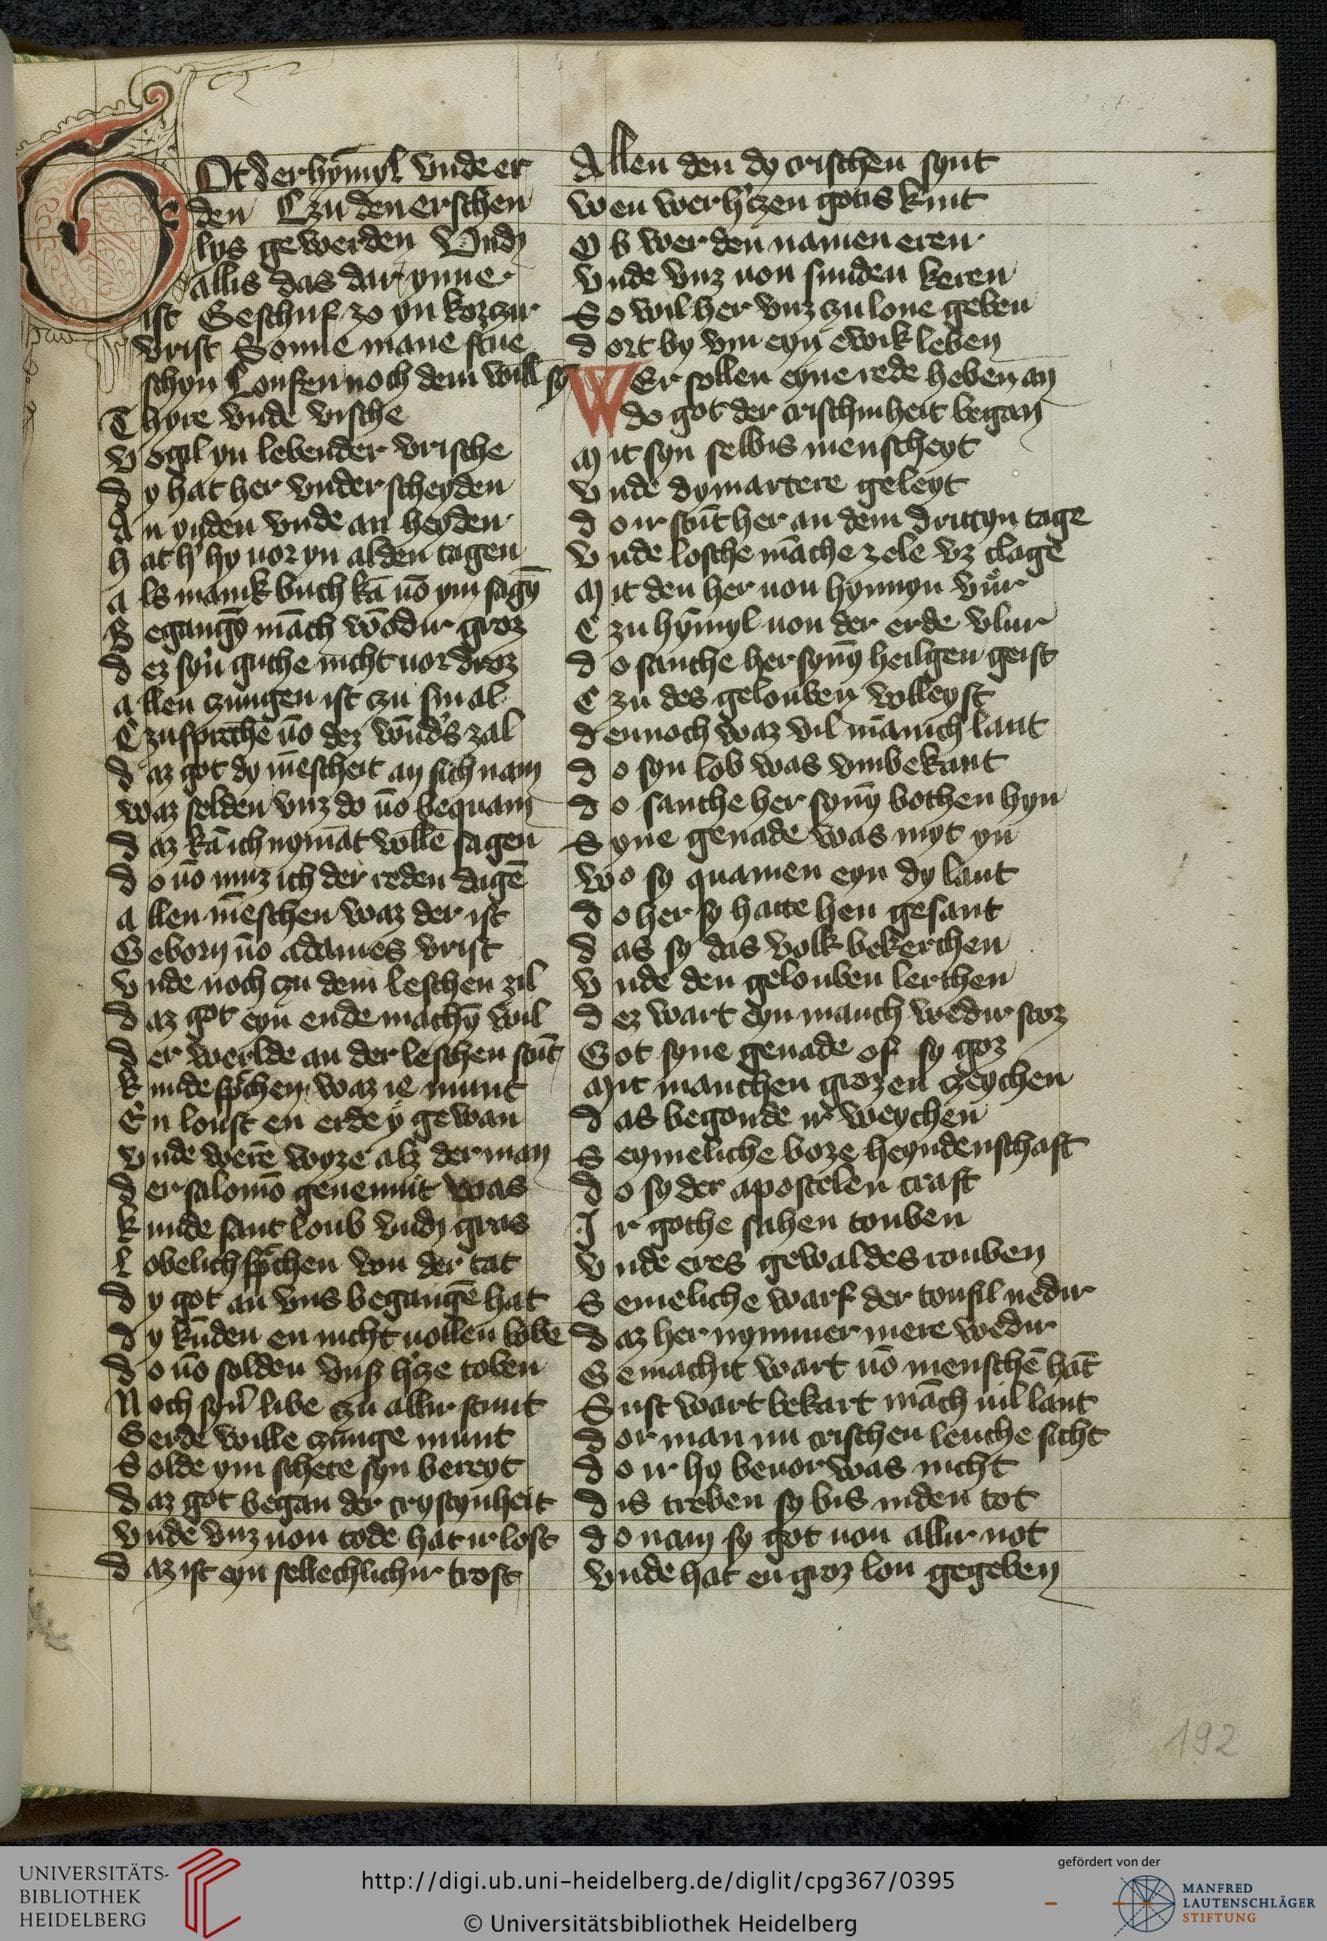 Got der hymyl vnde er
den Czu den erschen
lys gewerden Vndy
allis das dar ynne
ist Geschuf zo yn korczur
vrist Sonne mane
schyn noch dem will sy
Thyre vnde vische
vogil yn lebender vrische
dy hat her vnder scheyden
An yuden vnde an heyden
hat h' hy uor yn alden tagen
als manik buch kā uō ym sagȳ
Begangȳ māch wōdir groz
dez syn' guthe nicht uordroz
allen zungen ist czu smal
Czu sprechē uō dez wūd's zal
daz got dy mēscheit an sich nam
waz selden vnz do uō bequam
daz kā ich nymāt vollē sagen
do uō muz ich der reden dagē
allen mēschen waz der ist
Geborn uō adames vrist
vnde noch czu dem leschen zil
daz got eyn ende machȳ wil
der werlde an der leschen stūt
kunde sp'chen waz ie munt
En loust en erde y gewan
vnde werē wyze alz der man
der salomō genennit was
kunde sant loub vndy gras
lobelich sp'chen von der tat
dy got an vns begangē hat
dy kūden en nicht uollen lobē
do uō solden vnß h'ze toben
Noch syn' libe czu allir stunt
Gerde wille zunge munt
Solde ym schere syn bereyt
daz got began der crystynheit
vnde vnz uon tode hat irlost
daz ist eyn sellechlichir trost
Allen den dy crischen synt
wen wer h'czen gotis kint
Ob wer den namen eren
vnde vnz uon sunden keren
So wil her vnz czu lone geben
dort by ym eyn ewik leben
Wer sollen eyne rede heben an
do got der crischinheit began
Mit syn selbis menscheyt
vnde dy martere geleyt
do irstūt her an dem drittyn tage
vnde losche māche zele vz clage
Mit den her uon hynnyn vur
Czu hȳmyl uon der erde vlur
do santhe her synȳ heiligen geist
Czu des gelouben volleyst
dennoch waz vil mānich lant
do syn lob was vmbekant
do santhe her synȳ bothen hyn
Syne genade was myt yn
wo sy quamen eyn dy lant
do her sy hatte hen gesant
das sy das volk bekerthen
vnde den gelouben lerthen
dez wart eyn manch wedir stoz
Got syne genade of sy goz
Mit manchen grozen czeychen
das begonde ir weychen
Seymeliche boze heyndenschaft
do sy der apostelen craft
Ir gothe sahen touben
vnde eres gewaldes rouben
Semeliche warf der toufil nedir
daz her nymmer mere wedir
Gemachit wart uō menschē hāt
Sust wart bekart māch uil lant
dor man nu crischen leuthe sicht
do ir hy beuor was nicht
dis treben sy bis inden tot
do nam sy got uon allir not
vnde hat en groz lon gegeben
192
UNIVERSITÄTS-
BIBLIOTHEK
HEIDELBERG
http://digi.ub.uni-heidelberg.de/diglit/cpg367/0395
© Universitätsbibliothek Heidelberg
gefördert von der
MANFRED
LAUTENSCHLÄGER
STIFTUNG